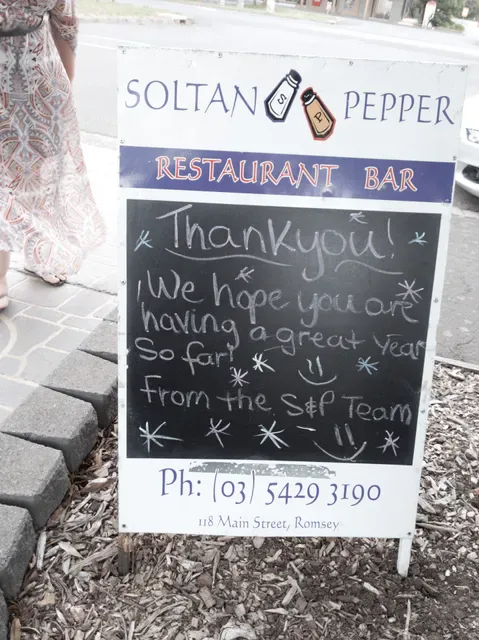 SOLTAN S P PEPPER
RESTAURANT BAR
Thankyou!
We hope you are
having a great year
So far!
from the S&P Team
Ph: (03) 5429 3190
118 Main Street, Romsey